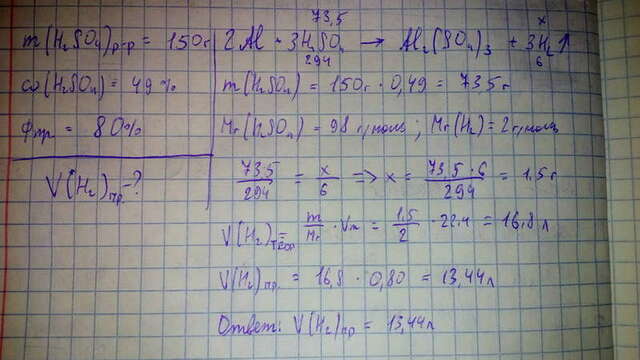 m(H₂SO₄)р-р = 150г
ω(H₂SO₄) = 49%
φпр = 80%
V(H₂)пр. - ?
73,5 x
2Al + 3H₂SO₄ → Al₂(SO₄)₃ + 3H₂↑
294 6
m(H₂SO₄) = 150г · 0,49 = 73,5г
Mr(H₂SO₄) = 98 г/моль ; Mr(H₂) = 2г/моль
73,5/294 = x/6 => x = 73,5 · 6/294 = 1,5г
V(H₂)теор = m/Mr · Vm = 1,5/2 · 22,4 = 16,8 л
V(H₂)пр. = 16,8 · 0,80 = 13,44л
Ответ: V(H₂)пр = 13,44л